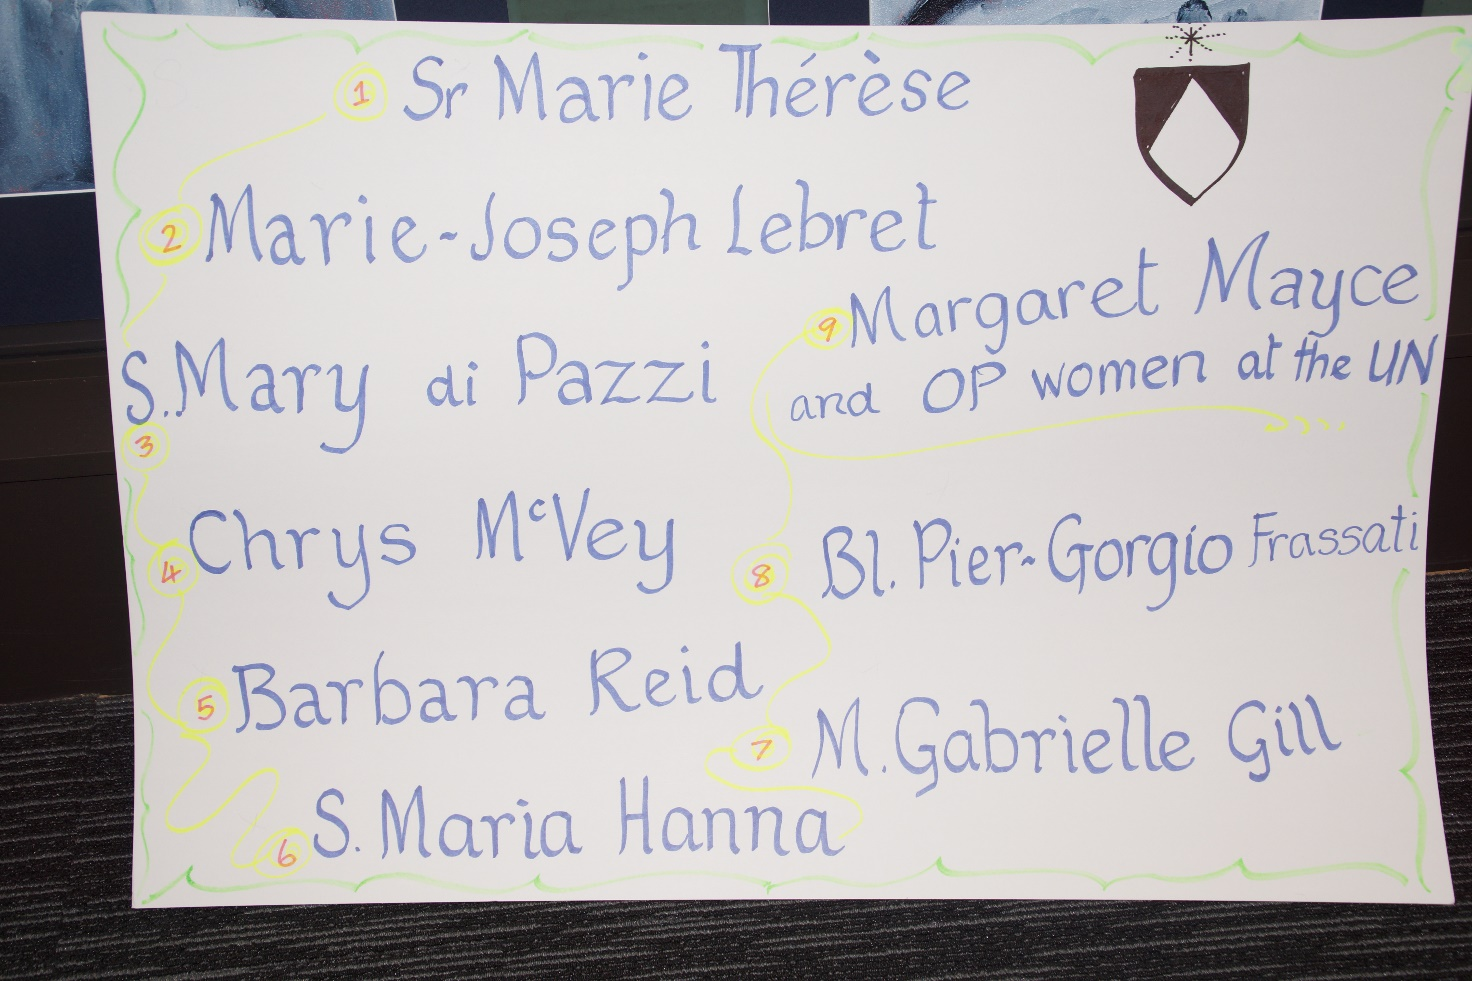 1 Sr Marie Thérèse
2 Marie-Joseph Lebret
S. Mary di Pazzi
3
4 Chrys McVey
5 Barbara Reid
6 S. Maria Hanna
7 M. Gabrielle Gill
8 Bl. Pier-Gorgio Frassati
9 Margaret Mayce
and OP women at the UN